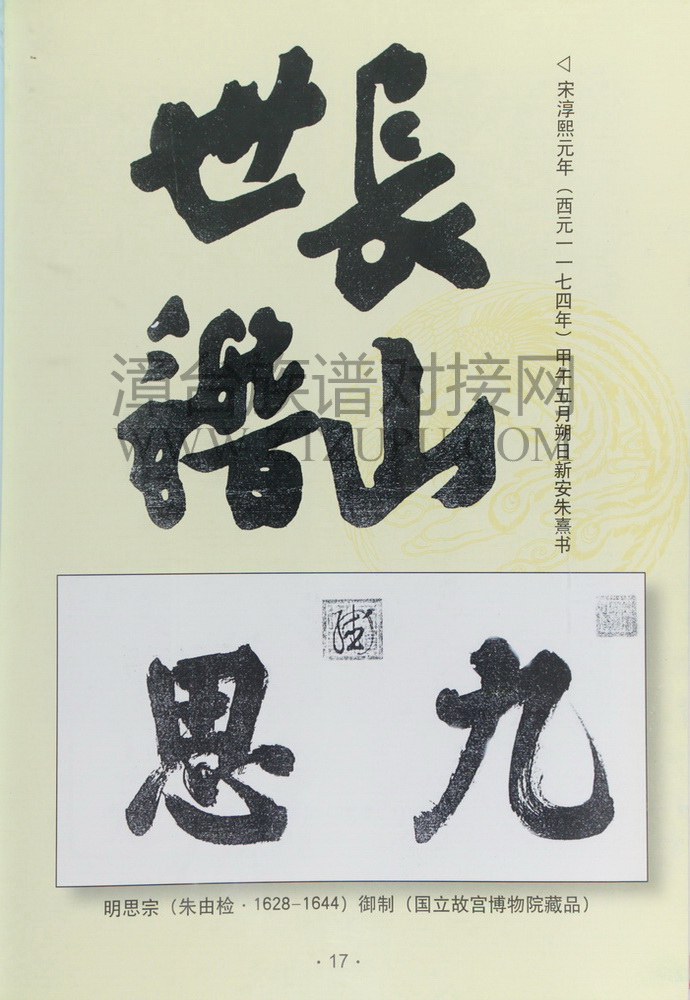 ◁ 宋淳熙元年（西元一一七四年）甲午五月朔日新安朱熹书
長山
世譜
漳台族谱对接网
WWW.ZTZUPU.COM
九思
明思宗（朱由检·1628-1644）御制（国立故宫博物院藏品）
·17·